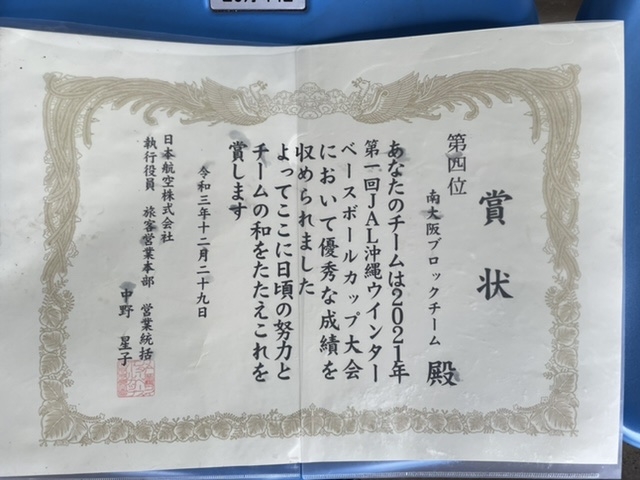 賞状
第四位
南大阪ブロックチーム 殿
あなたのチームは2021年
第一回JAL沖縄ウインター
ベースボールカップ大会
において優秀な成績を
収められました
よってここに日頃の努力と
チームの和をたたえこれを
賞します
令和三年十二月二十九日
日本航空株式会社
執行役員 旅客営業本部 営業統括
中野 星子